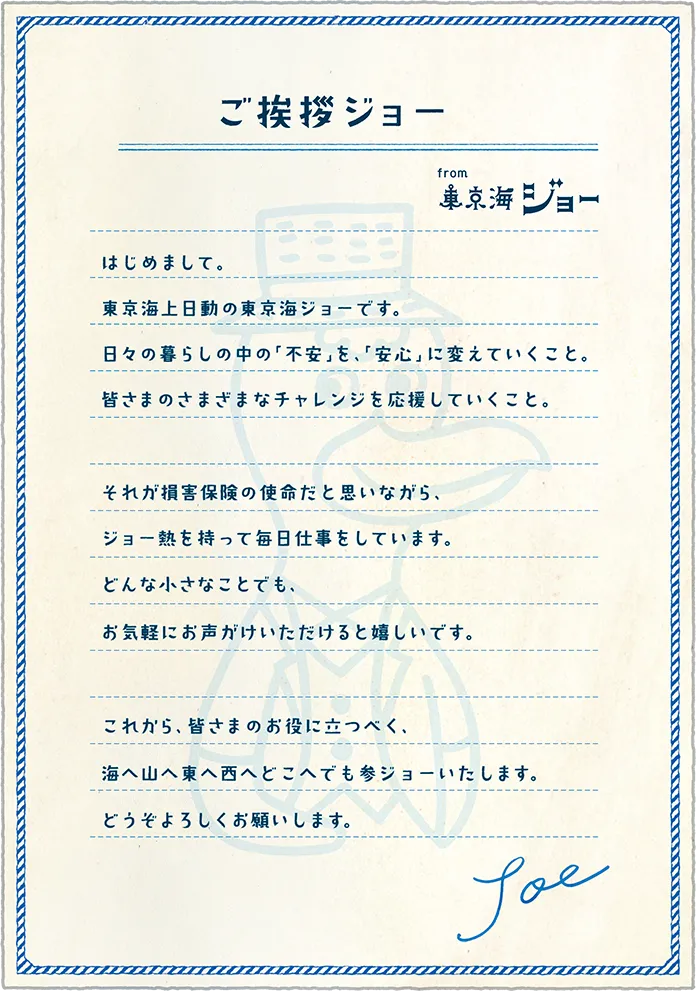 ご挨拶ジョー
from
東京海ジョー
はじめまして。
東京海上日動の東京海ジョーです。
日々の暮らしの中の「不安」を、「安心」に変えていくこと。
皆さまのさまざまなチャレンジを応援していくこと。
それが損害保険の使命だと思いながら、
ジョー熱を持って毎日仕事をしています。
どんな小さなことでも、
お気軽にお声がけいただけると嬉しいです。
これから、皆さまのお役に立つべく、
海へ山へ東へ西へどこへでも参ジョーいたします。
どうぞよろしくお願いします。
Joe